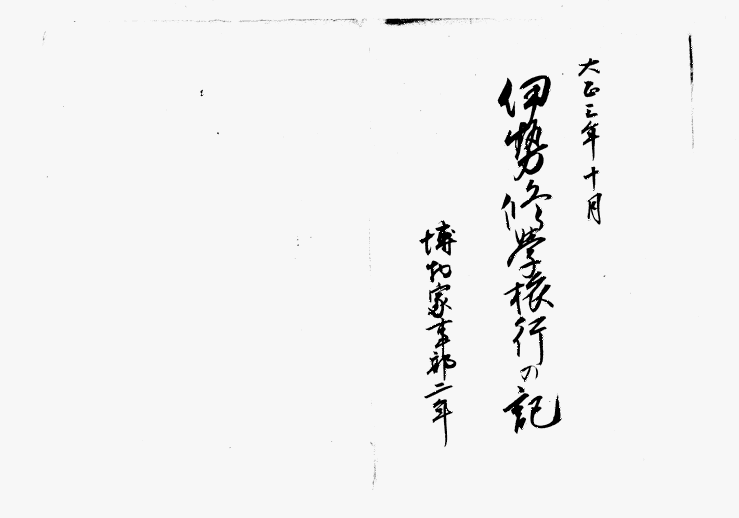 大正三年十月
伊勢修學旅行の記
博物家事部二年